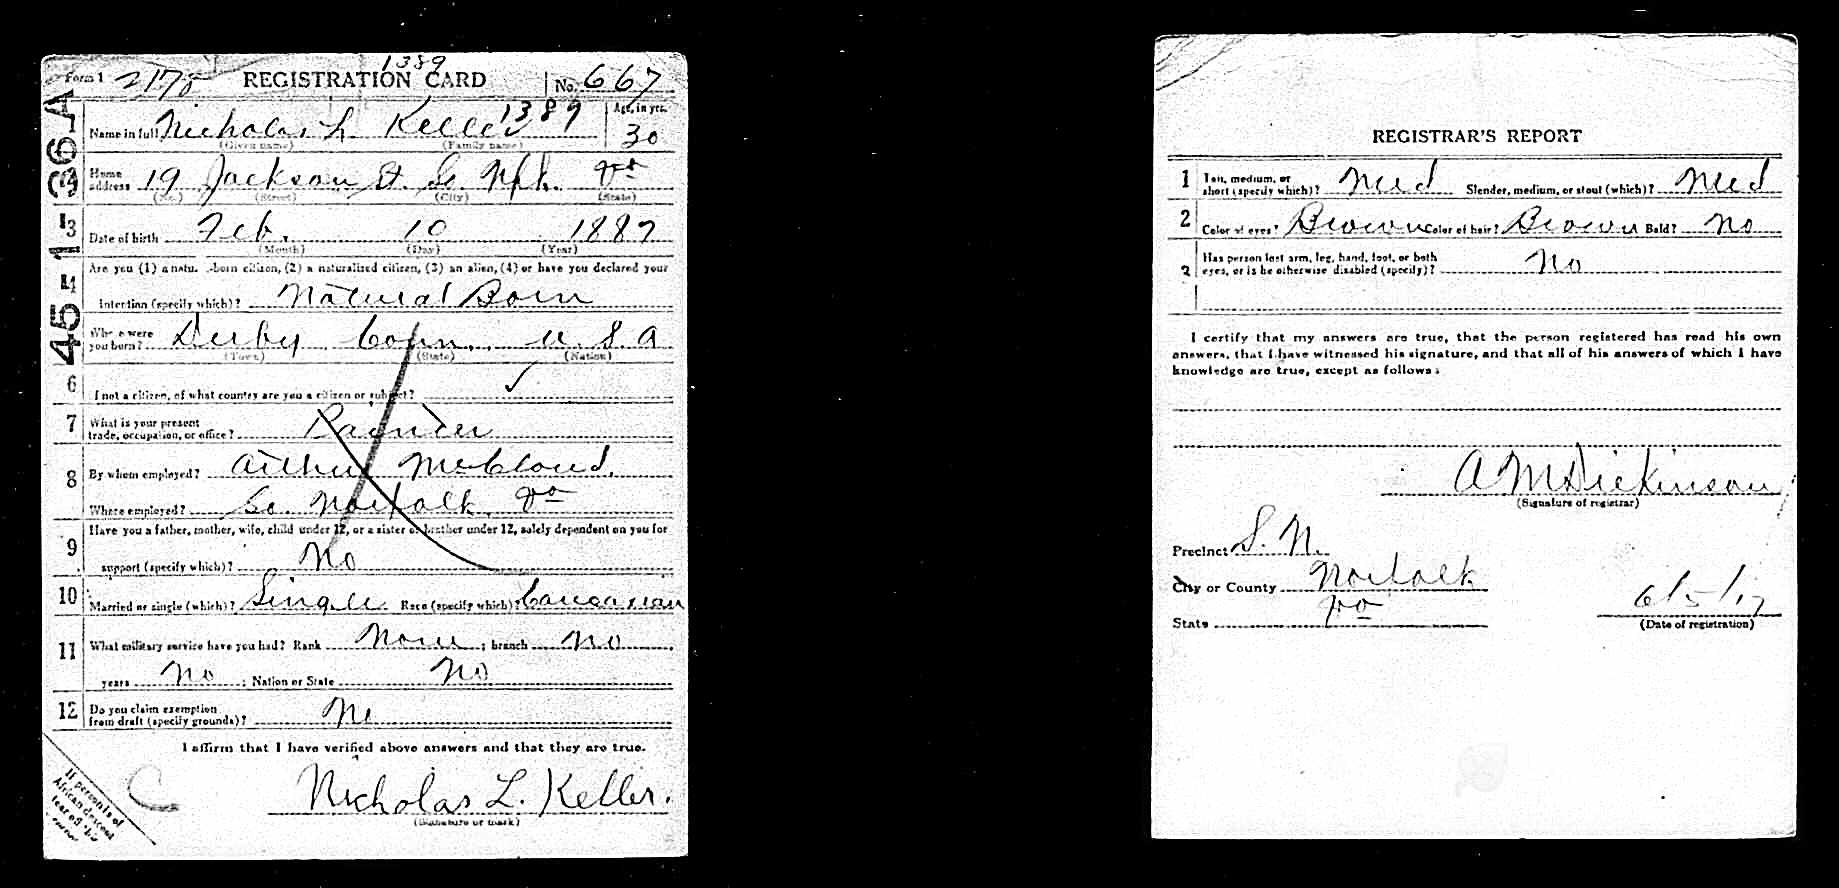 1389
Form 1 2178 REGISTRATION CARD No. 667
45-1-36 A
1 Name in full Nicholas L. Keller 1389 Age, in yrs. 30
(Given name) (Family name)
2 Home address 19 Jackson St. So. Nfk. Va
(No.) (Street) (City) (State)
3 Date of birth Feb. 10 1887
(Month) (Day) (Year)
4 Are you (1) a natu -born citizen, (2) a naturalized citizen, (3) an alien, (4) or have you declared your
intention (specify which)? Natural Born
Where were
you born? Derby Conn. U. S. A
(Town) (State) (Nation)
6 I not a citizen, of what country are you a citizen or subject? ✓
7 What is your present
trade, occupation, or office? Painter
8 By whom employed? Arthur McCloud.
Where employed? So. Norfolk Va
9 Have you a father, mother, wife, child under 12, or a sister or brother under 12, solely dependent on you for
support (specify which)? No
10 Married or single (which)? Single Race (specify which)? Caucasian
11 What military service have you had? Rank None ; branch No
years No ; Nation or State No
12 Do you claim exemption
from draft (specify grounds)? No
I affirm that I have verified above answers and that they are true.
C
Nicholas L. Keller.
(Signature or mark)
If person is of
African descent
tear off this
corner
REGISTRAR'S REPORT
1 Tall, medium, or
short (specify which)? Med Slender, medium, or stout (which)? Med
2 Color of eyes? Brown Color of hair? Brown Bald? No
3 Has person lost arm, leg, hand, foot, or both
eyes, or is he otherwise disabled (specify)? No
I certify that my answers are true, that the person registered has read his own
answers, that I have witnessed his signature, and that all of his answers of which I have
knowledge are true, except as follows:
A M Dickinson
(Signature of registrar)
Precinct S. N.
City or County Norfolk
State Va
6/5/17
(Date of registration)